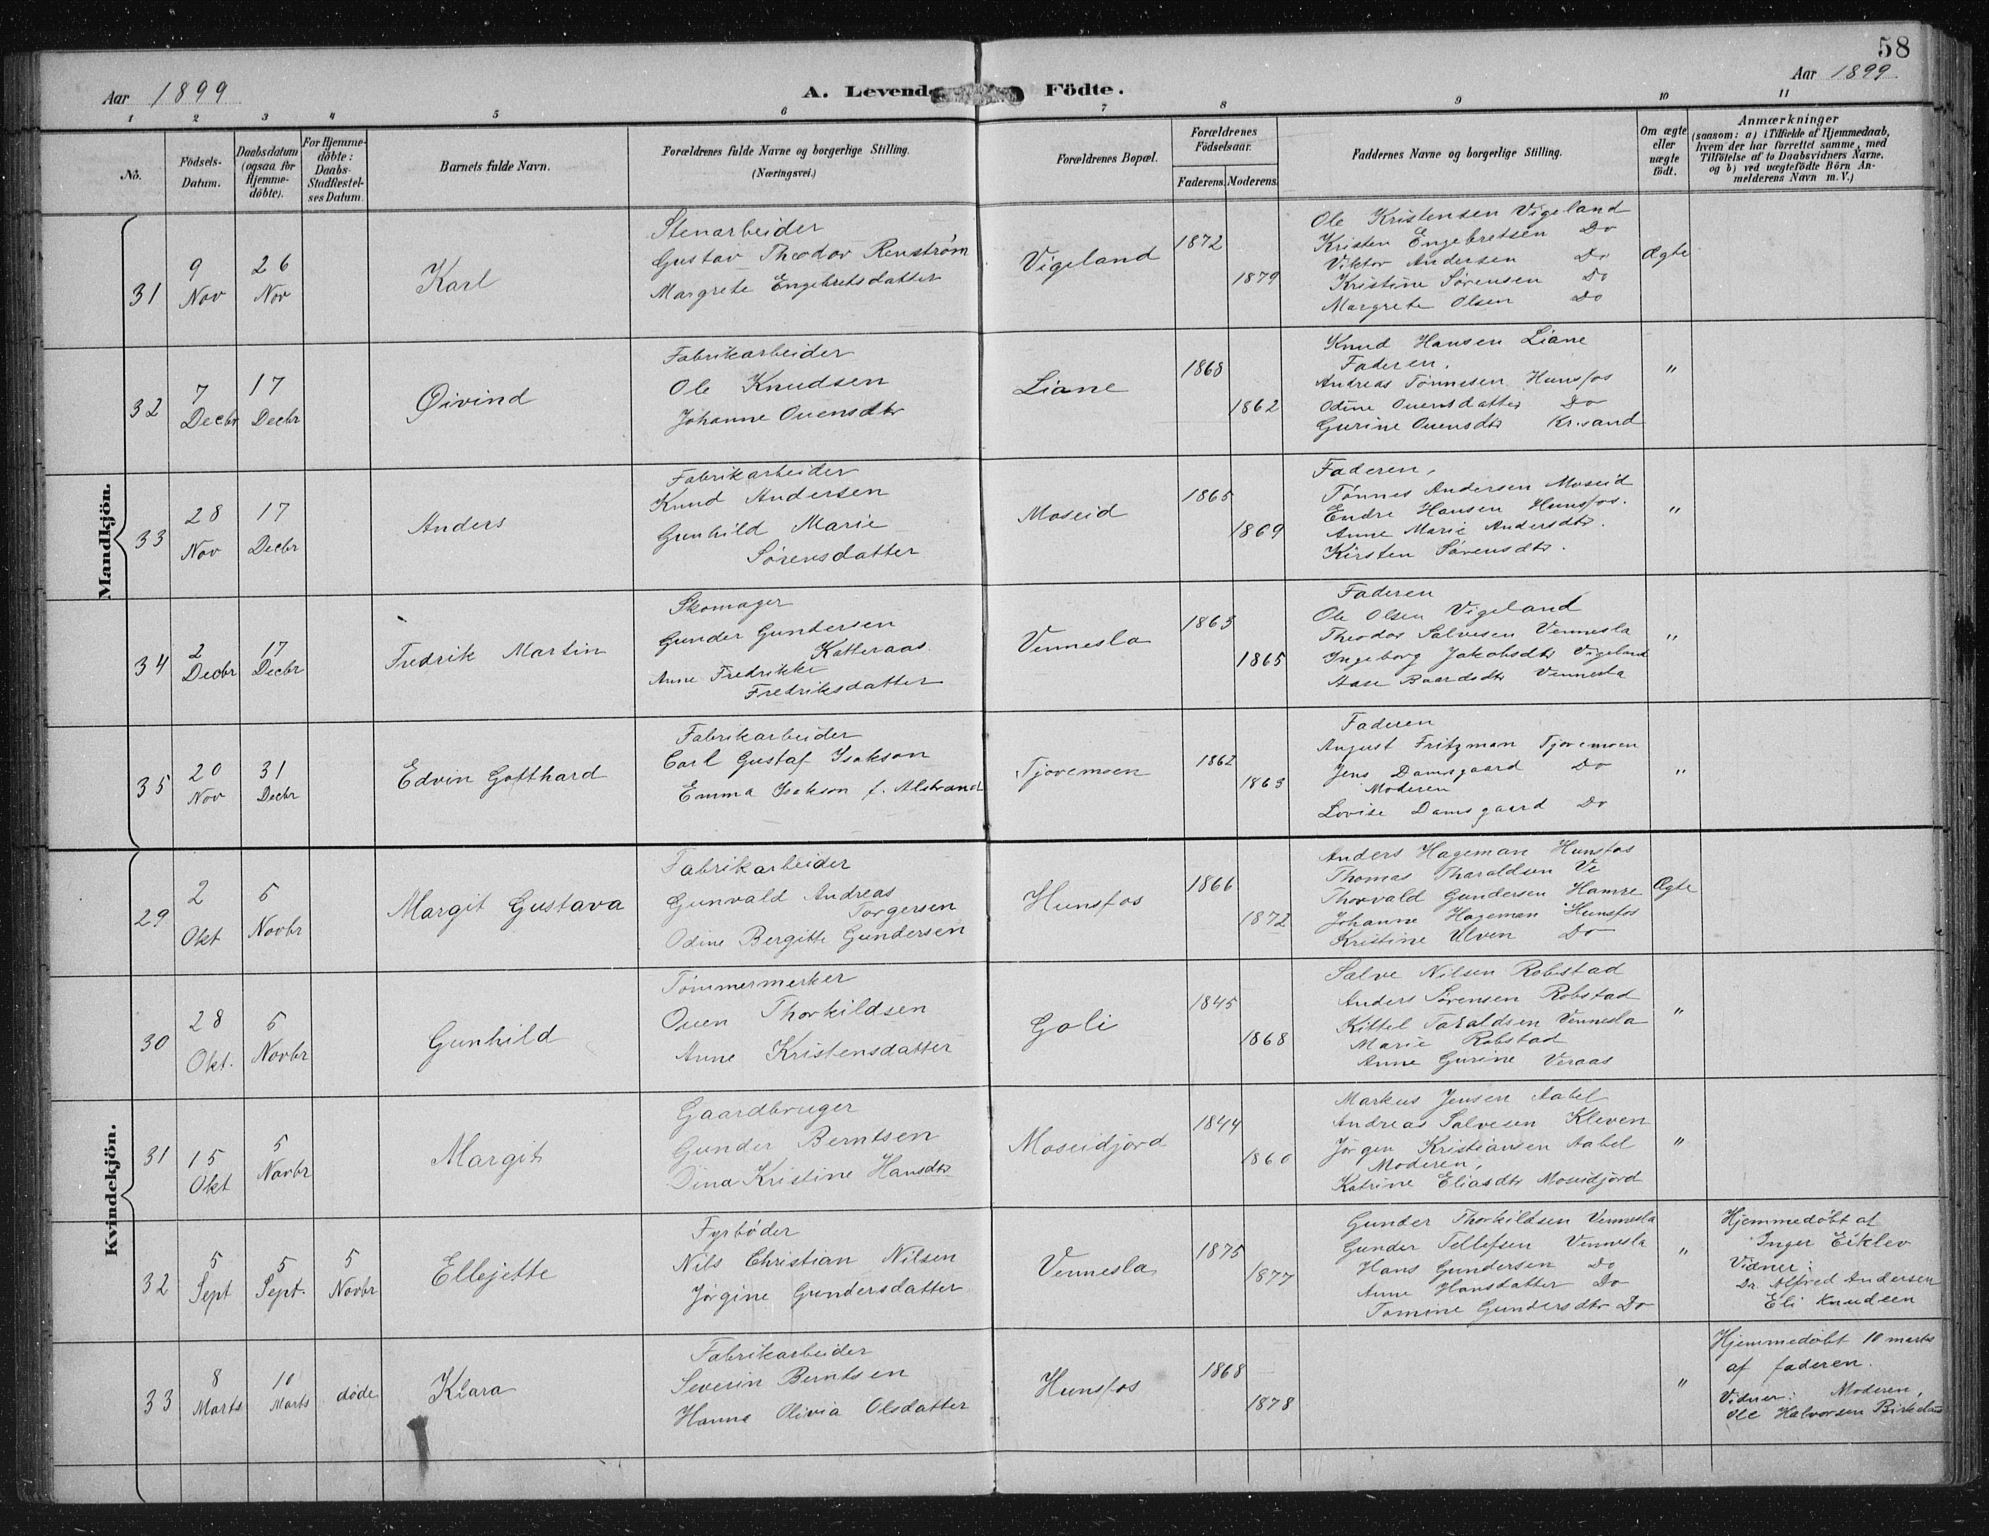 58
Aar 1899
A. Levende Födte.
Aar 1899.
1 2 3 4 5 6 7 8 9 10 11
No.
Födsels-Datum.
Daabsdatum (ogsaa for Hjemme-döbte).
For Hjemme-döbte: Daabs-Stadfæstel-ses Datum.
Barnets fulde Navn.
Forældrenes fulde Navne og borgerlige Stilling. (Næringsvei.)
Forældrenes Bopæl.
Forældrenes Födselsaar.
Faderens. Moderens.
Faddernes Navne og borgerlige Stilling.
Om ægte eller uægte födt.
Anmærkninger
(saasom: a) i Tilfælde af Hjemmedaab, hvem der har forrettet samme, med Tilföielse af to Daabsvidners Navne, og b) ved uægtefödte Börn An-melderens Navn m. V.)
Mandkjön.
31
9 Nov
26 Nov
Karl
Stenarbeider
Gustav Theodor Renström
Margrete Engebretsdatter
Vigeland
1872
1879
Ole Kristensen Vigeland
Kristen Engebretsen Do
Viktor Andersen Do
Kristine Sørensen Do
Margrete Olsen Do
Ægte
32
7 Decbr
17 Decbr
Øivind
Fabrikarbeider
Ole Knudsen
Johanne Ouensdtr
Liane
1868
1862
Knud Hansen Liane
Faderen,
Andreas Tønnesen Hunsfos
Odine Ouensdatter Do
Gurine Ouensdtr Kr.sand
"
33
28 Nov
17 Decbr
Anders
Fabrikarbeider
Knud Andersen
Gunhild Marie
Sørensdatter
Moseid
1865
1869
Faderen,
Tønnes Andersen Moseid
Endre Hansen Hunsfos.
Anne Marie Andersdtr.
Kirsten Sørensdtr.
"
34
2 Decbr
17 Decbr
Fredrik Martin
Skomager
Gunder Gundersen
Katteraas.
Anne Fredrikke
Fredriksdatter
Vennesla
1863
1865
Faderen
Ole Olsen Vigeland
Theodor Salvesen Vennesla
Ingeborg Jakobsdtr Vigeland
Aase Baardsdtr Vennesla
"
35
20 Nov
31 Decbr
Edvin Gotthard
Fabrikarbeider
Carl Gustaf Isakson
Emma Isakson f. Alstrand
Tjovemoen
1862
1863
Faderen
August Fritzman Tjovemoen
Jens Damsgaard Do
Moderen
Lovise Damsgaard Do
"
Kvindekjön.
29
2 Okt
5 Novbr
Margit Gustava
Fabrikarbeider
Gunvald Andreas
Torgersen
Odine Bergitte Gundersen
Hunsfos
1866
1872
Anders Hageman Hunsfos
Thomas Tharaldsen Ve
Thorvald Gundersen Hamre
Johanne Hageman Hunsfos
Kristine Ulven Do
Ægte
30
28 Okt.
5 Novbr
Gunhild
Tømmermerker
Ouen Thorkildsen
Anne Kristensdatter
Goli
1845
1868
Salve Nilsen Robstad
Anders Sørensen Robstad
Kittel Taraldsen Vennesla
Marie Robstad
Anne Gurine Veraas
"
31
15 Okt
5 Novbr
Margit
Gaardbruger
Gunder Berntsen
Dina Kristine Hansdtr
Moseidjord
1844
1860
Markus Jensen Aabel
Andreas Salvesen Kleven
Jørgen Kristiansen Aabel
Moderen,
Katrine Eliasdtr Moseidjord
"
32
5 Sept
5 Sept.
5 Novbr
Ellejette
Fyrbøder
Nils Christian Nilsen
Jørgine Gundersdatter
Vennesla
1875
1877
Gunder Thorkildsen Vennesla
Gunder Tellefsen Vennesla
Hans Gundersen Do
Anne Hansdatter Do
Tomine Gundersdtr Do
"
Hjemmedøbt af
Inger Eiklev
Vidner:
Dr. Alfred Andersen
Eli Knudsen
33
8 Marts
10 Marts
døde
Klara
Fabrikarbeider
Severin Berntsen
Hanna Olivia Olsdatter
Hunsfos
1868
1878
"
Hjemmedøbt 10 marts
af faderen.
Vidner: Moderen,
Ole Halvorsen Birkeland